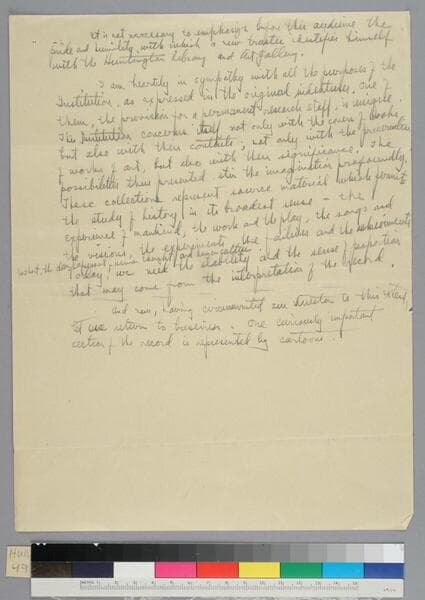 It is not necessary to emphasize before this audience the
pride and humility with which a new trustee identifies himself
with the Huntington Library and Art Gallery.
I am heartily in sympathy with all the purposes of the
Institution, as expressed in the original indenture. One of
them, the provision for a permanent research staff, is unique.
The Institution concerns itself not only with the covers of books
but also with their contents; not only with the preservation
of works of art, but also with their significance. The
possibilities thus presented stir the imagination profoundly.
These collections represent source material which permits
the study of history in its broadest sense - the
experience of mankind, the work and the play, the songs and
the visions, the experiments, the failures and the achievements
what the
Today, we need the stability and the sense of proportion
that may come from the interpretation of the record.
And now, having circumvented our director to this extent,
let us return to business. One curiously important
section of the record is represented by cartoons.